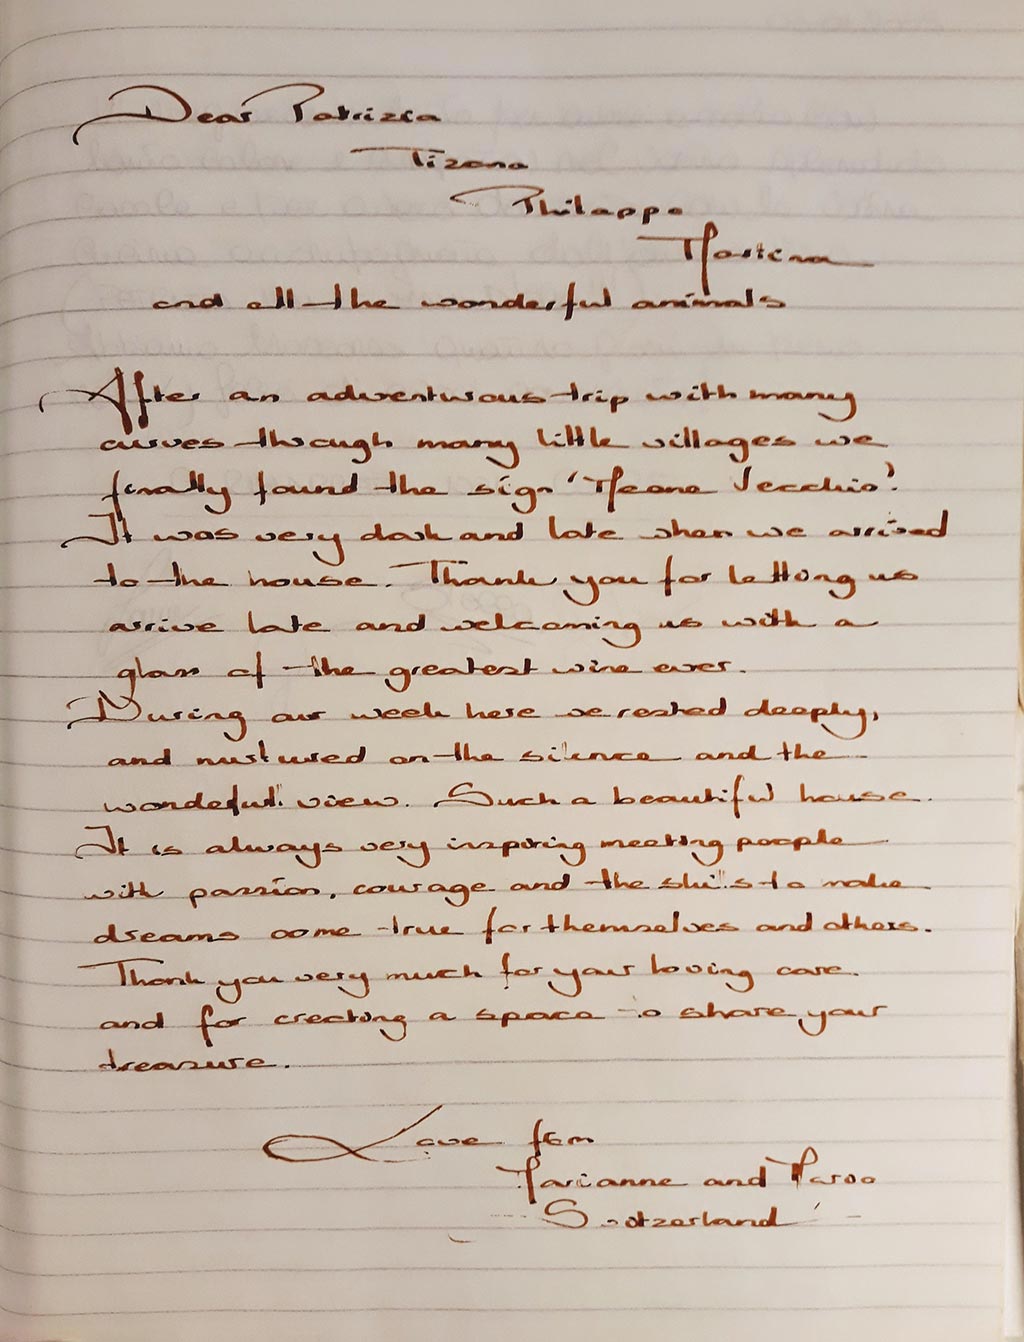 Dear Patrizia
Tizana
Philappo
Martina
and all the wonderful animals
After an adventurous trip with many
curves through many little villages we
finally found the sign 'Meone Vecchio'.
It was very dark and late when we arrived
to the house. Thank you for letting us
arrive late and welcoming us with a
glass of the greatest wine ever.
During our week here we rested deeply,
and nurtured on the silence and the
wonderful view. Such a beautiful house.
It is always very inspiring meeting people
with passion, courage and the skills to make
dreams come true for themselves and others.
Thank you very much for your loving care
and for creating a space to share your
treasure.
Love from
Marianne and
Switzerland